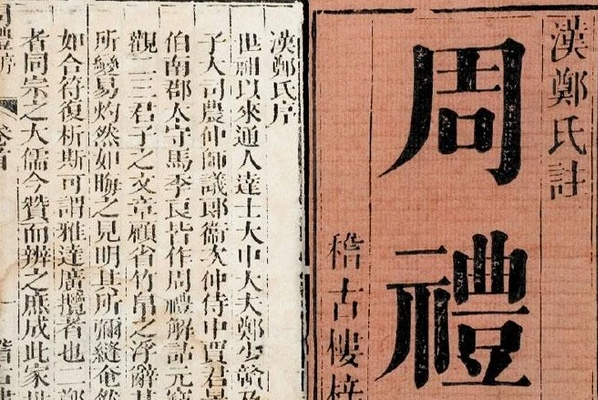 漢鄭氏註
周禮
稽古樓梓
漢鄭氏序
世祖以來通人達士大中大夫鄭少贛及
子大司農仲師議郎衛次仲侍中賈君景
伯南郡太守馬季長皆作周禮解詁元竊
觀二三君子之文章顧省竹帛之浮辭其
所變易灼然如晦之見明其所彌縫奄然
如合符復析斯可謂雅達廣攬者也二鄭
者同宗之大儒今贊而辨之庶成此家世
周禮序
卷首